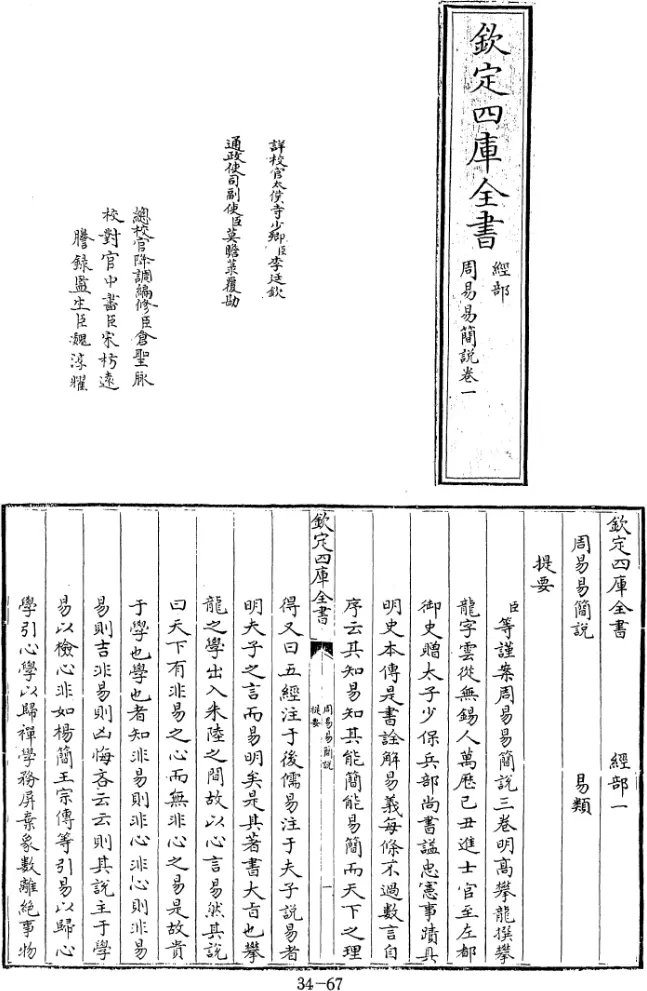 欽定四庫全書
經部
周易易簡說卷一
詳校官太僕寺少卿臣李廷欽
通政使司副使臣莫瞻菉覆勘
總校官降調編修臣倉聖脈
校對官中書臣宋枋遠
謄錄監生臣魏淳耀
欽定四庫全書 經部一
周易易簡說 易類
提要
臣等謹案周易易簡說三卷明高攀龍撰攀
龍字雲從無錫人萬歷己丑進士官至左都
御史贈太子少保兵部尚書謚忠憲事蹟具
明史本傳是書詮解易義每條不過數言自
序云其知易知其能簡能易簡而天下之理
欽定四庫全書
周易易簡說
提要
一
得又曰五經注于後儒易注于夫子說易者
明夫子之言而易明矣是其著書大旨也攀
龍之學出入朱陸之間故以心言易然其說
曰天下有非易之心而無非心之易是故貴
于學也學也者知非易則非心非心則非易
易則吉非易則凶悔吝云云則其說主于學
易以檢心非如楊簡王宗傳等引易以歸心
學引心學以歸禪學務屏棄象數離絕事物
34-67